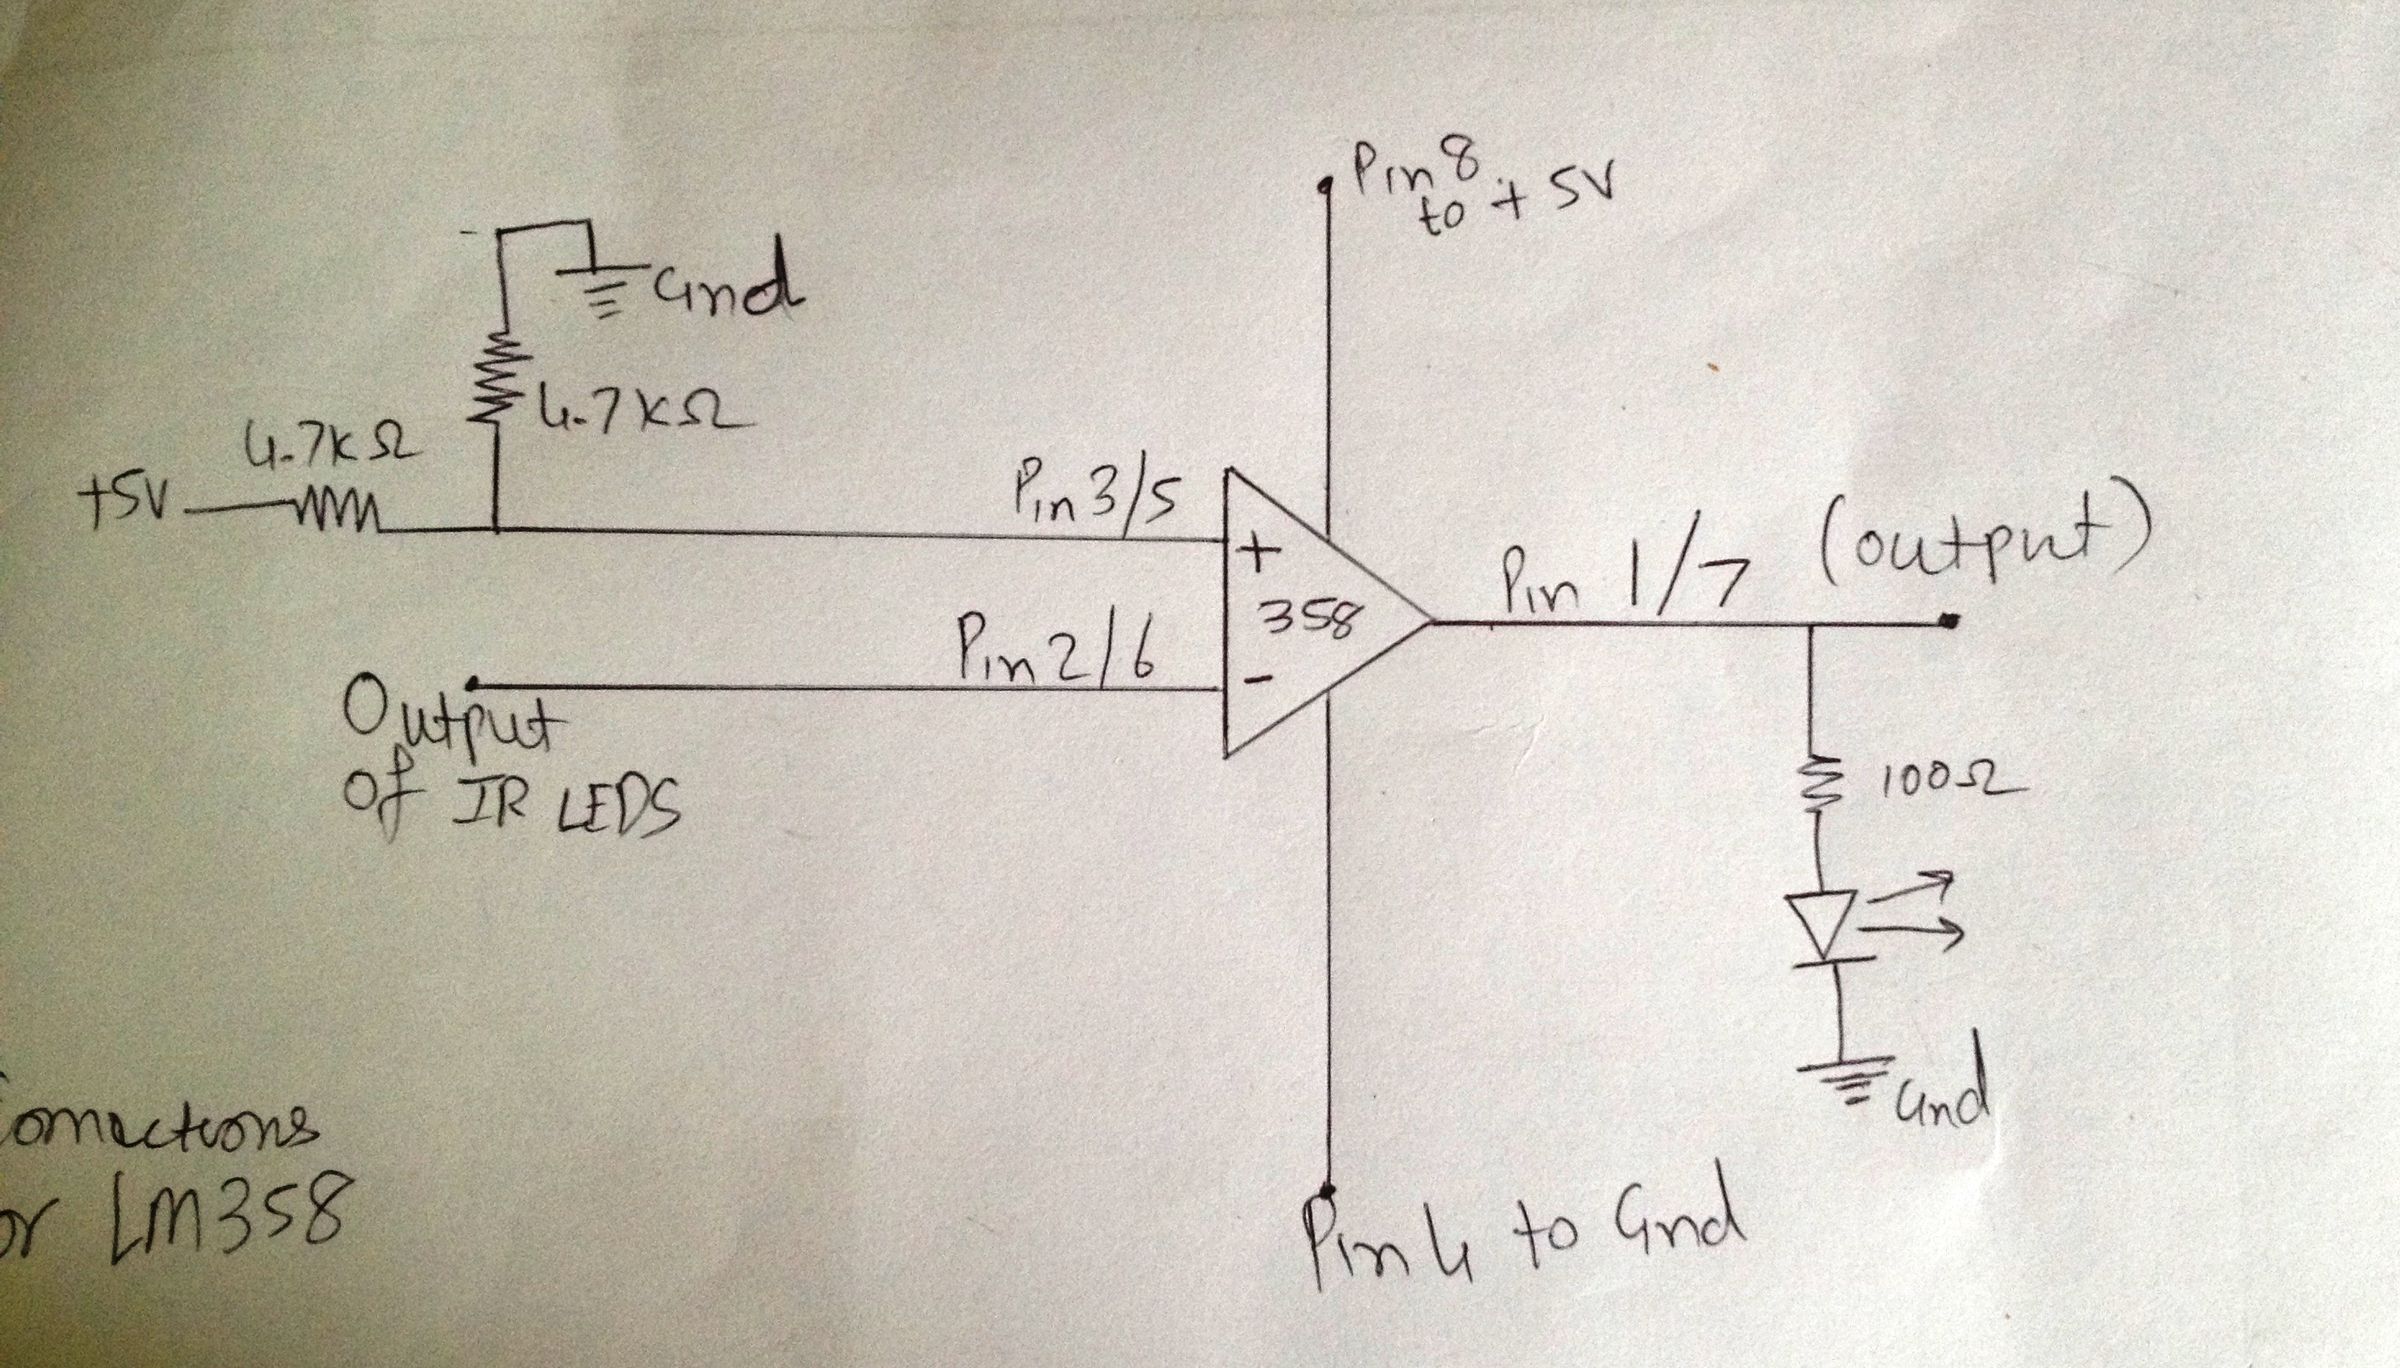 Pin 8
to + 5V
Gnd
4.7KΩ
4.7KΩ
+5V
Pin 3/5
+
358
-
Pin 1/7 (output)
Pin 2/6
Output
of IR LEDS
100Ω
Gnd
onnections
or LM358
Pin 4 to Gnd